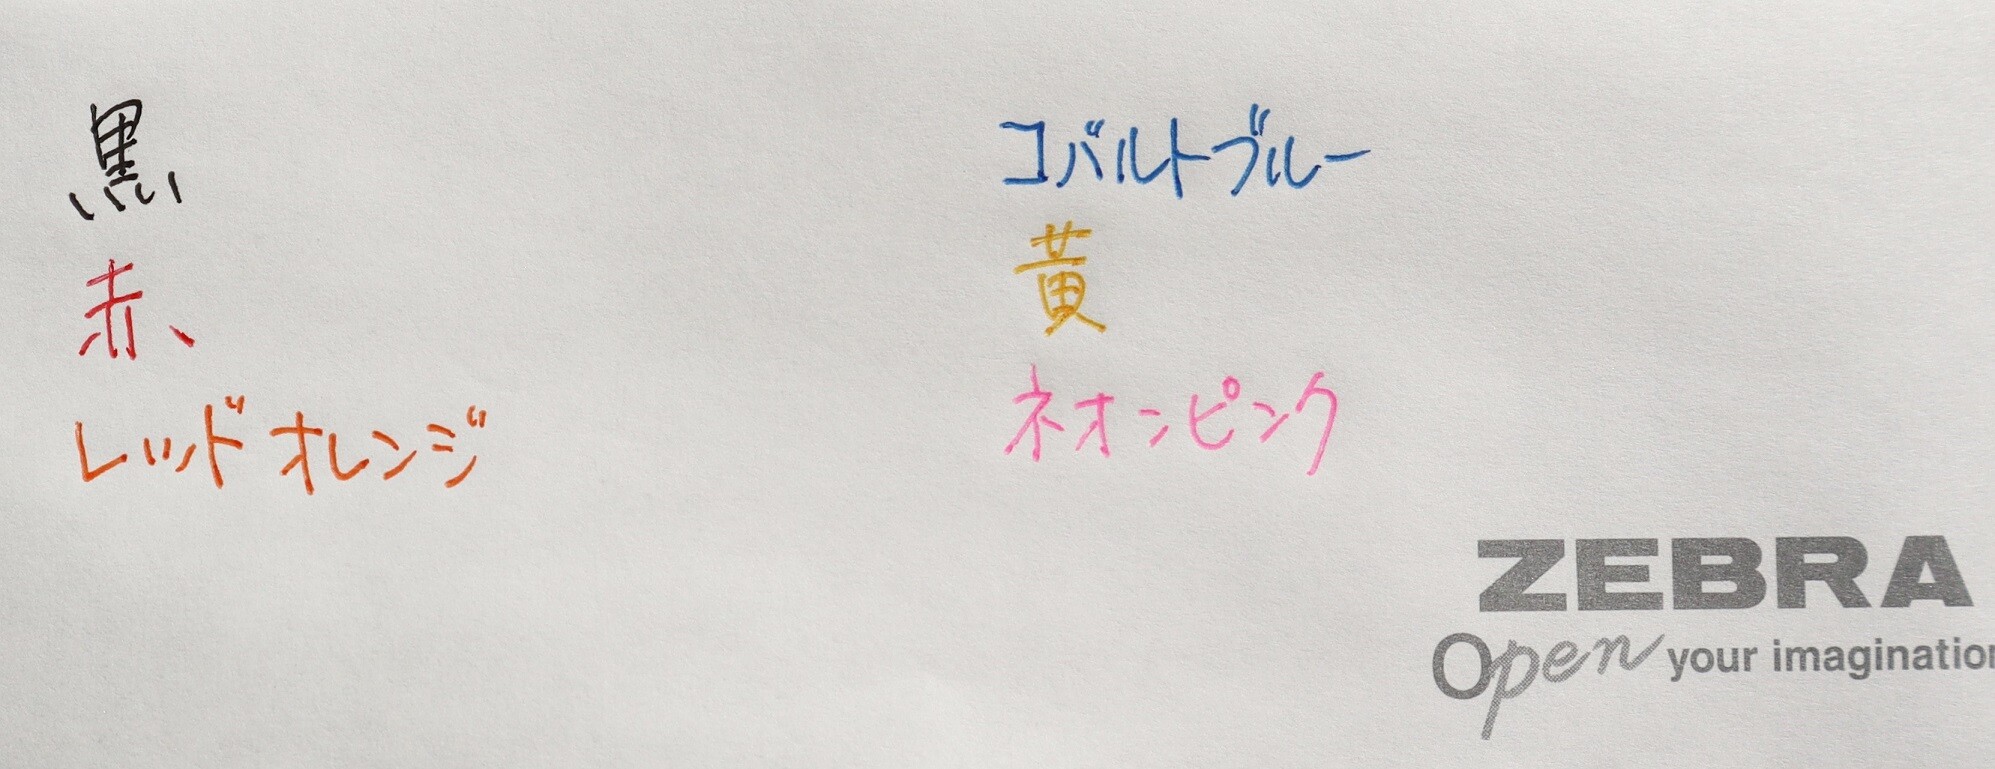 黒
赤
レッドオレンジ
コバルトブルー
黄
ネオンピンク
ZEBRA
Open your imagination